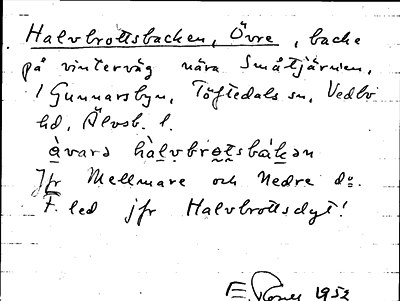 Halvbrottsbacken, Övre, backe
på vinterväg nära Småtjärnen,
i Gunnarsbyn, Töftedals sn, Vedbo
hd, Älvsb. l.
åvara hàlvbrotsbákan
Jfr Mellmare och Nedre do.
F. led jfr Halvbrottsdyt!
E. 1952